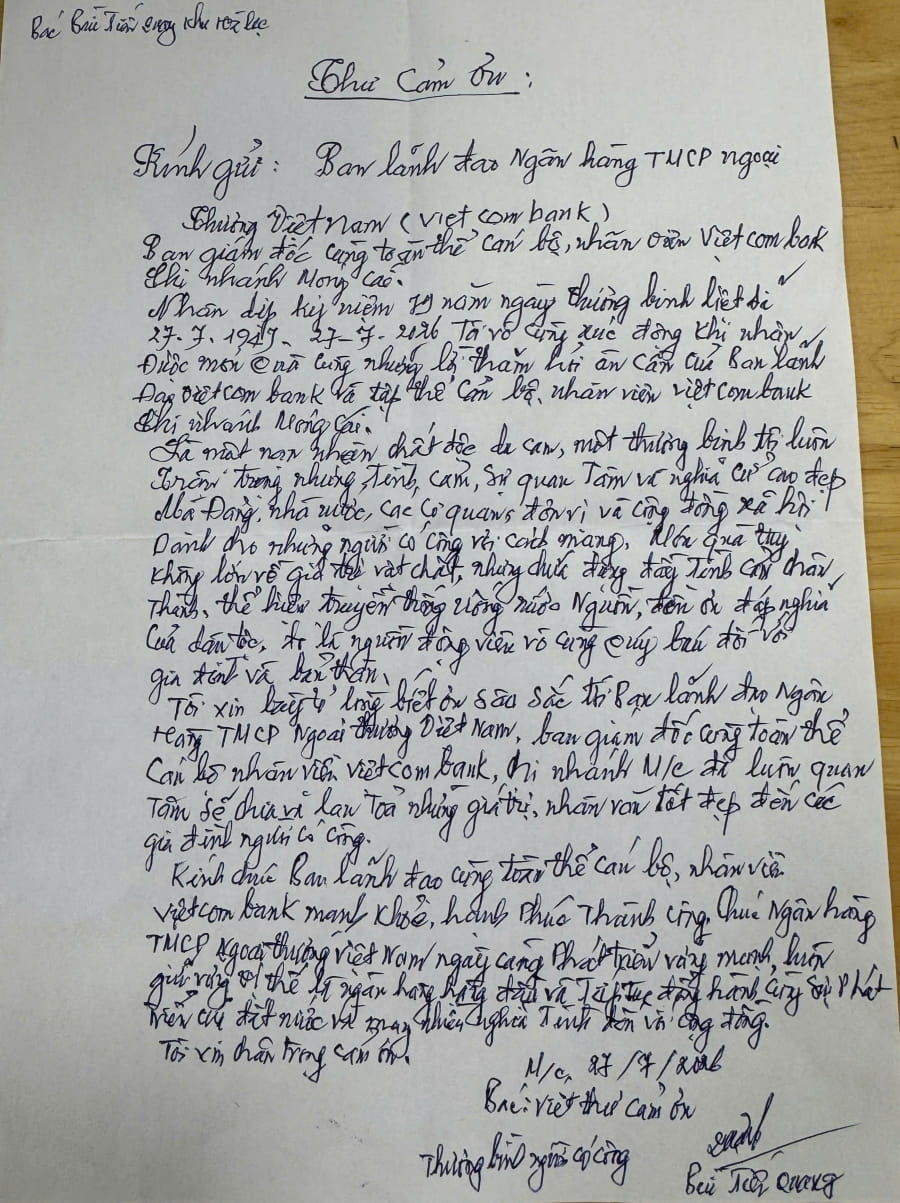 Bác Bùi Tiến Quang khu Hoà Lạc
Thư Cảm Ơn:
Kính gửi: Ban lãnh đạo Ngân hàng TMCP ngoại
Thương Việt Nam (Việt com bank)
Ban giám đốc cùng toàn thể cán bộ, nhân viên Việt com bank
Chi nhánh Móng Cái.
Nhân dịp kỷ niệm 79 năm ngày thương binh liệt sĩ
27.7.1947. 27-7-2026 Tôi vô cùng xúc động khi nhận
Được món quà cùng những lời thăm hỏi ân cần của Ban lãnh
Đạo Việt com bank và tập thể cán bộ, nhân viên việt com bank
Chi nhánh Móng Cái.
Là một nạn nhân chất độc da cam, một thương binh tôi luôn
Trân trọng những, tình, cảm, sự quan Tâm và nghĩa cử cao đẹp
Mà Đảng, nhà nước, các cơ quang, đơn vị và cộng đồng xã hội
Dành cho những người có công với cách mạng, Món quà tuy
không lớn về giá trị vật chất, nhưng chứa đựng đầy Tình cảm chân
Thành, thể hiện truyền thống uống nước Nguồn, đền ơn đáp nghĩa
Của dân tộc, đó là nguồn động viên vô cùng quý báu đối với
gia đình và bản thân,
Tôi xin bày tỏ lòng biết ơn sâu sắc tới Ban lãnh đạo Ngân
Hàng TMCP Ngoại thương Việt Nam, ban giám đốc cùng toàn thể
Cán bộ nhân viên việt com bank, chi nhánh M/c đã luôn quan
Tâm sẻ chia và lan Toả những giá trị, nhân văn tốt đẹp đến các
gia đình người có công.
Kính chúc Ban lãnh đạo cùng toàn thể cán bộ, nhân viên
Việt com bank mạnh khoẻ, hạnh Phúc Thành công, Chúc Ngân hàng
TMCP Ngoại thương Việt Nam ngày càng Phát triển vững mạnh, luôn
giữ vững vị thế là ngân hàng hàng đầu và Tiếp tục đồng hành cùng sự Phát
triển của đất nước và mang nhiều nghĩa Tình đến với cộng đồng.
Tôi xin chân trọng cảm ơn.
M/c, 27/7/2026
Bác: viết thư cảm ơn
Thương binh người có công
Bùi Tiến Quang